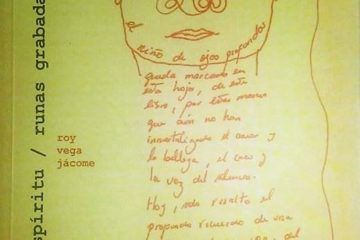 spíritu / runas grabada
roy
vega
jácome
el niño de ojos profundos
queda marcado en
esta hoja, de este
libro, por estas manos
que aún no han
inmortalizado el amor y
la belleza, el caos y
la voz del silencio.
Hoy, solo resalto el
profundo silencio de una
del